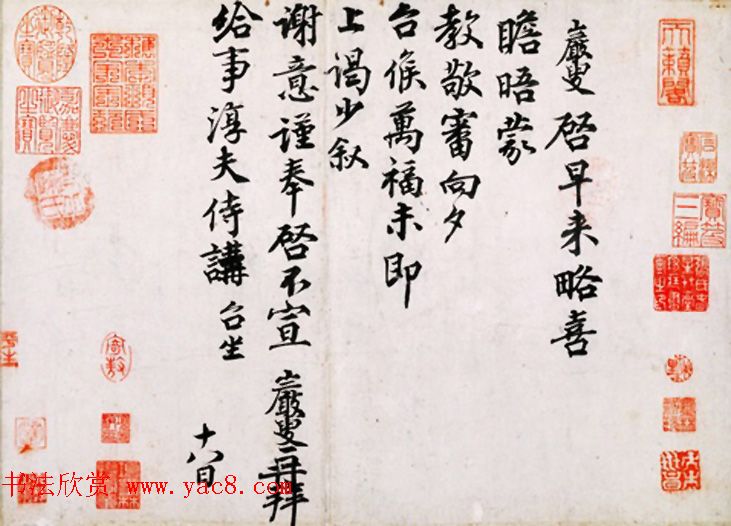 巖叟 啓早来略喜
瞻晤蒙
教敬審向夕
台候萬福未即
上謁少叙
謝意謹奉啓不宣 巖叟再拜
給事淳夫侍講 台坐
十八日
天籟閣
寶笈三編
书法欣赏 www.yac8.com